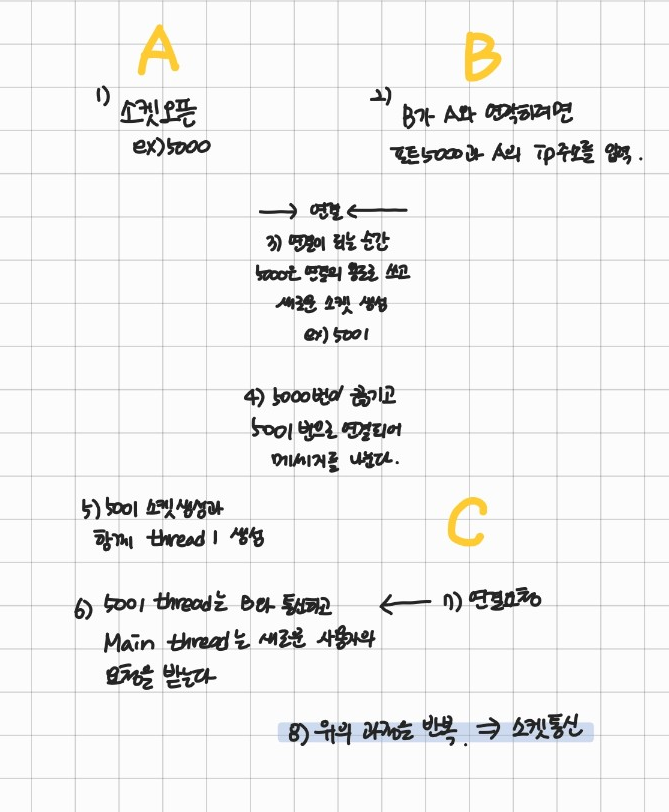 A
B
1) 소켓오픈
ex)5000
2) B가 A와 연락하려면
포트5000과 A의 IP주소를 입력.
→ 연결 ←
3) 연결이 되는 순간
5000은 연결의 용도로 쓰고
새로운 소켓 생성
ex) 5001
4) 5000번이 끊기고
5001번으로 연결되어
메세지를 나눈다.
5) 5001 소켓생성과
함께 thread 1 생성
C
6) 5001 thread는 B와 통신하고
Main thread는 새로운 사용자와
요청을 받는다
← 7) 연결요청
8) 위의 과정을 반복. ⇒ 소켓통신